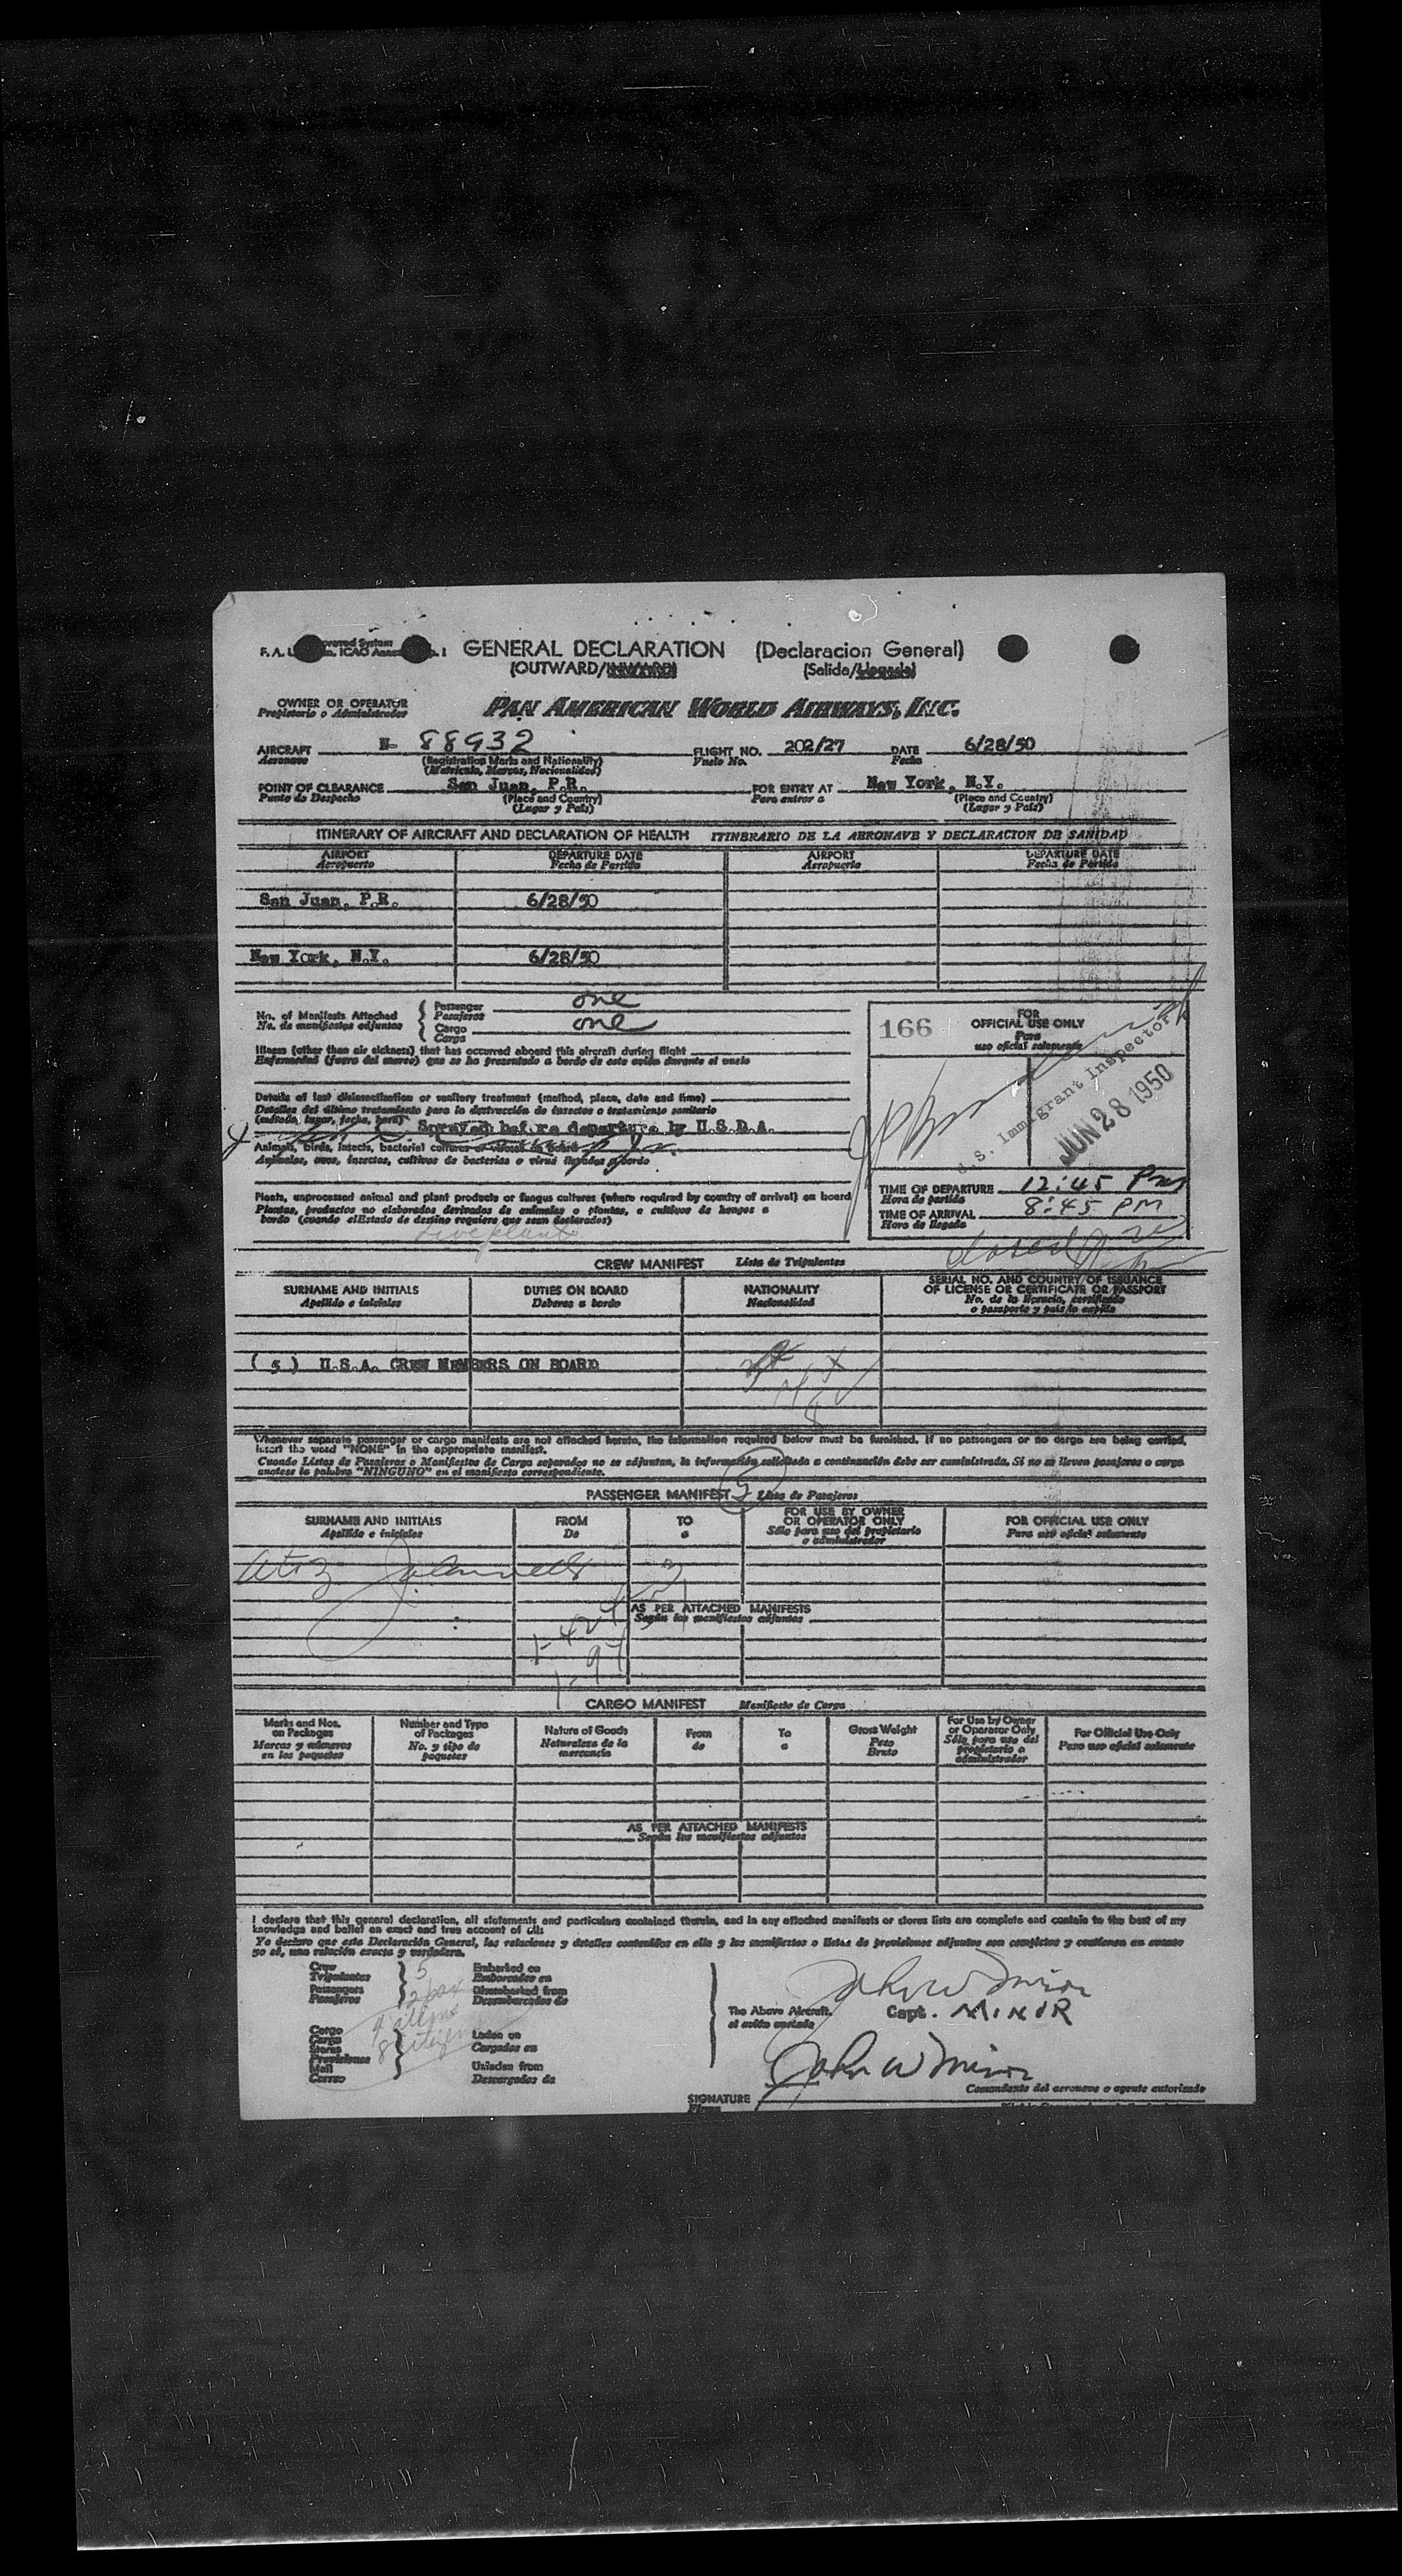 GENERAL DECLARATION (Declaracion General)
(OUTWARD/INWARD) (Salida/Llegada)
OWNER OR OPERATOR
Propietario o Administrador
PAN AMERICAN WORLD AIRWAYS, INC.
AIRCRAFT N- 88932 FLIGHT NO. 202/27 DATE 6/28/50
Aeronave (Registration Marks and Nationality) Vuelo No. Fecha
(Matricula, Marcas, Nacionalidad)
POINT OF CLEARANCE San Juan, P.R. FOR ENTRY AT New York, N.Y.
Punto de Despacho (Place and Country) Para entrar a (Place and Country)
(Lugar y País) (Lugar y País)
ITINERARY OF AIRCRAFT AND DECLARATION OF HEALTH ITINERARIO DE LA AERONAVE Y DECLARACION DE SANIDAD
AIRPORT DEPARTURE DATE AIRPORT DEPARTURE DATE
Aeropuerto Fecha de Partida Aeropuerto Fecha de Partida
San Juan, P.R. 6/28/50
New York, N.Y. 6/28/50
No. of Manifests Attached { Passenger one
No. de manifiestos adjuntos Pasajeros
Cargo one
Carga
Illness (other than air sickness) that has occurred aboard this aircraft during flight
Enfermedad (fuera del mareo) que se ha presentado a bordo de este avión durante el vuelo
Details of last disinsectization or sanitary treatment (method, place, date and time)
Detalles del último tratamiento para la destrucción de insectos o tratamiento sanitario
(método, lugar, fecha, hora) Sprayed before departure by U.S.D.A.
Animals, birds, insects, bacterial cultures or viruses on board
Animales, aves, insectos, cultivos de bacterias o virus llevados a bordo
Plants, unprocessed animal and plant products or fungus cultures (where required by country of arrival) on board
Plantas, productos no elaborados derivados de animales o plantas, o cultivos de hongos a
bordo (cuando el Estado de destino requiere que sean declarados)
166
FOR
OFFICIAL USE ONLY
Para
uso oficial solamente
U.S. Immigrant Inspector
JUN 28 1950
TIME OF DEPARTURE 12:45 PM
Hora de partida
TIME OF ARRIVAL 8:45 PM
Hora de llegada
CREW MANIFEST Lista de Tripulantes
SURNAME AND INITIALS DUTIES ON BOARD NATIONALITY SERIAL NO. AND COUNTRY OF ISSUANCE
OF LICENSE OR CERTIFICATE OR PASSPORT
Apellido e iniciales Deberes a bordo Nacionalidad No. de la licencia, certificado
o pasaporte y país lo expide
( 5 ) U.S.A. CREW MEMBERS ON BOARD
Whenever separate passenger or cargo manifests are not attached hereto, the information required below must be furnished. If no passengers or no cargo are being carried,
insert the word "NONE" in the appropriate manifest.
Cuando Listas de Pasajeros o Manifiestos de Carga separados no se adjuntan, la información solicitada a continuación debe ser suministrada. Si no se llevan pasajeros o carga
anótese la palabra "NINGUNO" en el manifiesto correspondiente.
PASSENGER MANIFEST Lista de Pasajeros
SURNAME AND INITIALS FROM TO FOR USE BY OWNER
OR OPERATOR ONLY FOR OFFICIAL USE ONLY
Apellido e iniciales De a Sólo para uso del propietario
o administrador Para uso oficial solamente
AS PER ATTACHED MANIFESTS
Según los manifiestos adjuntos
CARGO MANIFEST Manifiesto de Carga
Marks and Nos. on Packages Number and Type of Packages Nature of Goods From To Gross Weight For Use by Owner or Operator Only For Official Use Only
Marcas y números en los paquetes No. y tipo de paquetes Naturaleza de la mercancía de a Peso Bruto Sólo para uso del propietario o administrador Para uso oficial solamente
AS PER ATTACHED MANIFESTS
Según los manifiestos adjuntos
I declare that this general declaration, all statements and particulars contained therein, and in any attached manifests or stores lists are complete and contain to the best of my
knowledge and belief an exact and true account of all:
Yo declaro que esta Declaración General, las relaciones y detalles contenidos en ella y los manifiestos o listas de provisiones adjuntos son completos y contienen en cuanto
yo sé, una relación exacta y verdadera.
Crew 5 Embarked on
Tripulantes Embarcados en
Passengers Disembarked from
Pasajeros Desembarcados de
Cargo
Carga
Stores Laden on
Provisiones Cargados en
Mail Unladen from
Correo Descargados de
The Above Aircraft.
el avión anotado
John W Minor
Capt. MINOR
John W Minor
SIGNATURE
Comandante del aeronave o agente autorizado